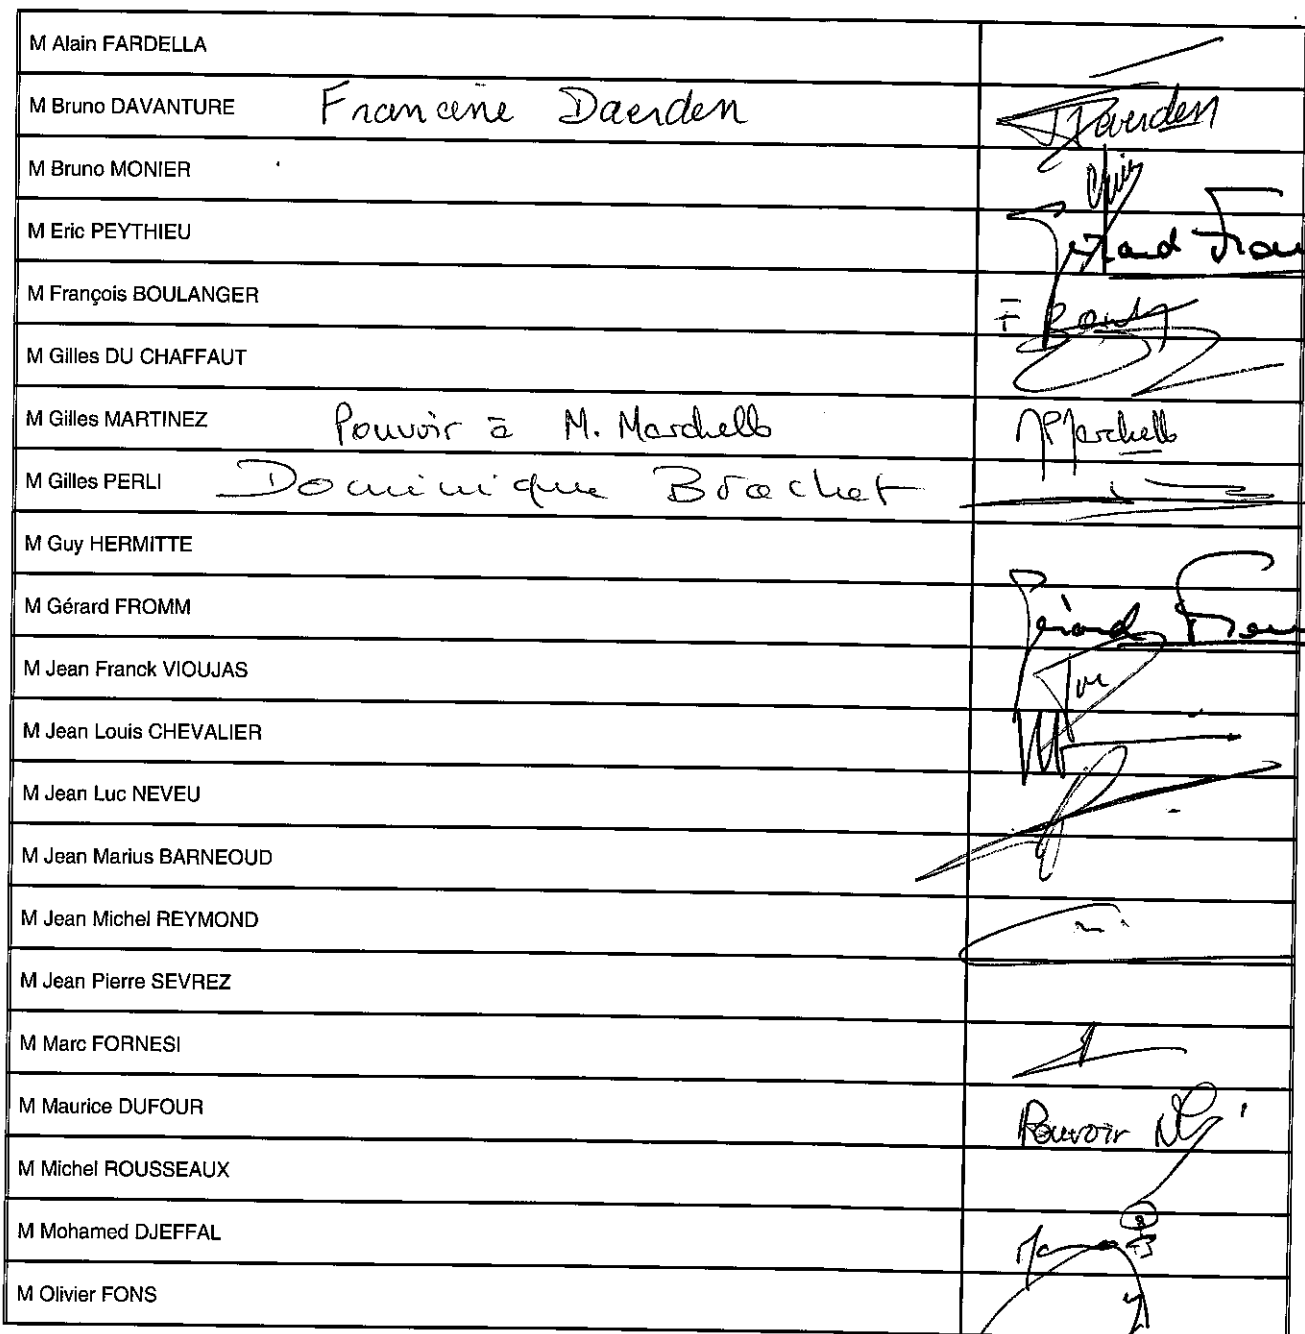 M Alain FARDELLA
M Bruno DAVANTURE Francine Daerden
M Bruno MONIER
M Eric PEYTHIEU
M François BOULANGER
M Gilles DU CHAFFAUT
M Gilles MARTINEZ Pouvoir à M. Marchello
M Gilles PERLI Dominique Brachet
M Guy HERMITTE
M Gérard FROMM Gérard
M Jean Franck VIOUJAS
M Jean Louis CHEVALIER
M Jean Luc NEVEU
M Jean Marius BARNEOUD
M Jean Michel REYMOND
M Jean Pierre SEVREZ
M Marc FORNESI
M Maurice DUFOUR Pouvoir
M Michel ROUSSEAUX
M Mohamed DJEFFAL
M Olivier FONS